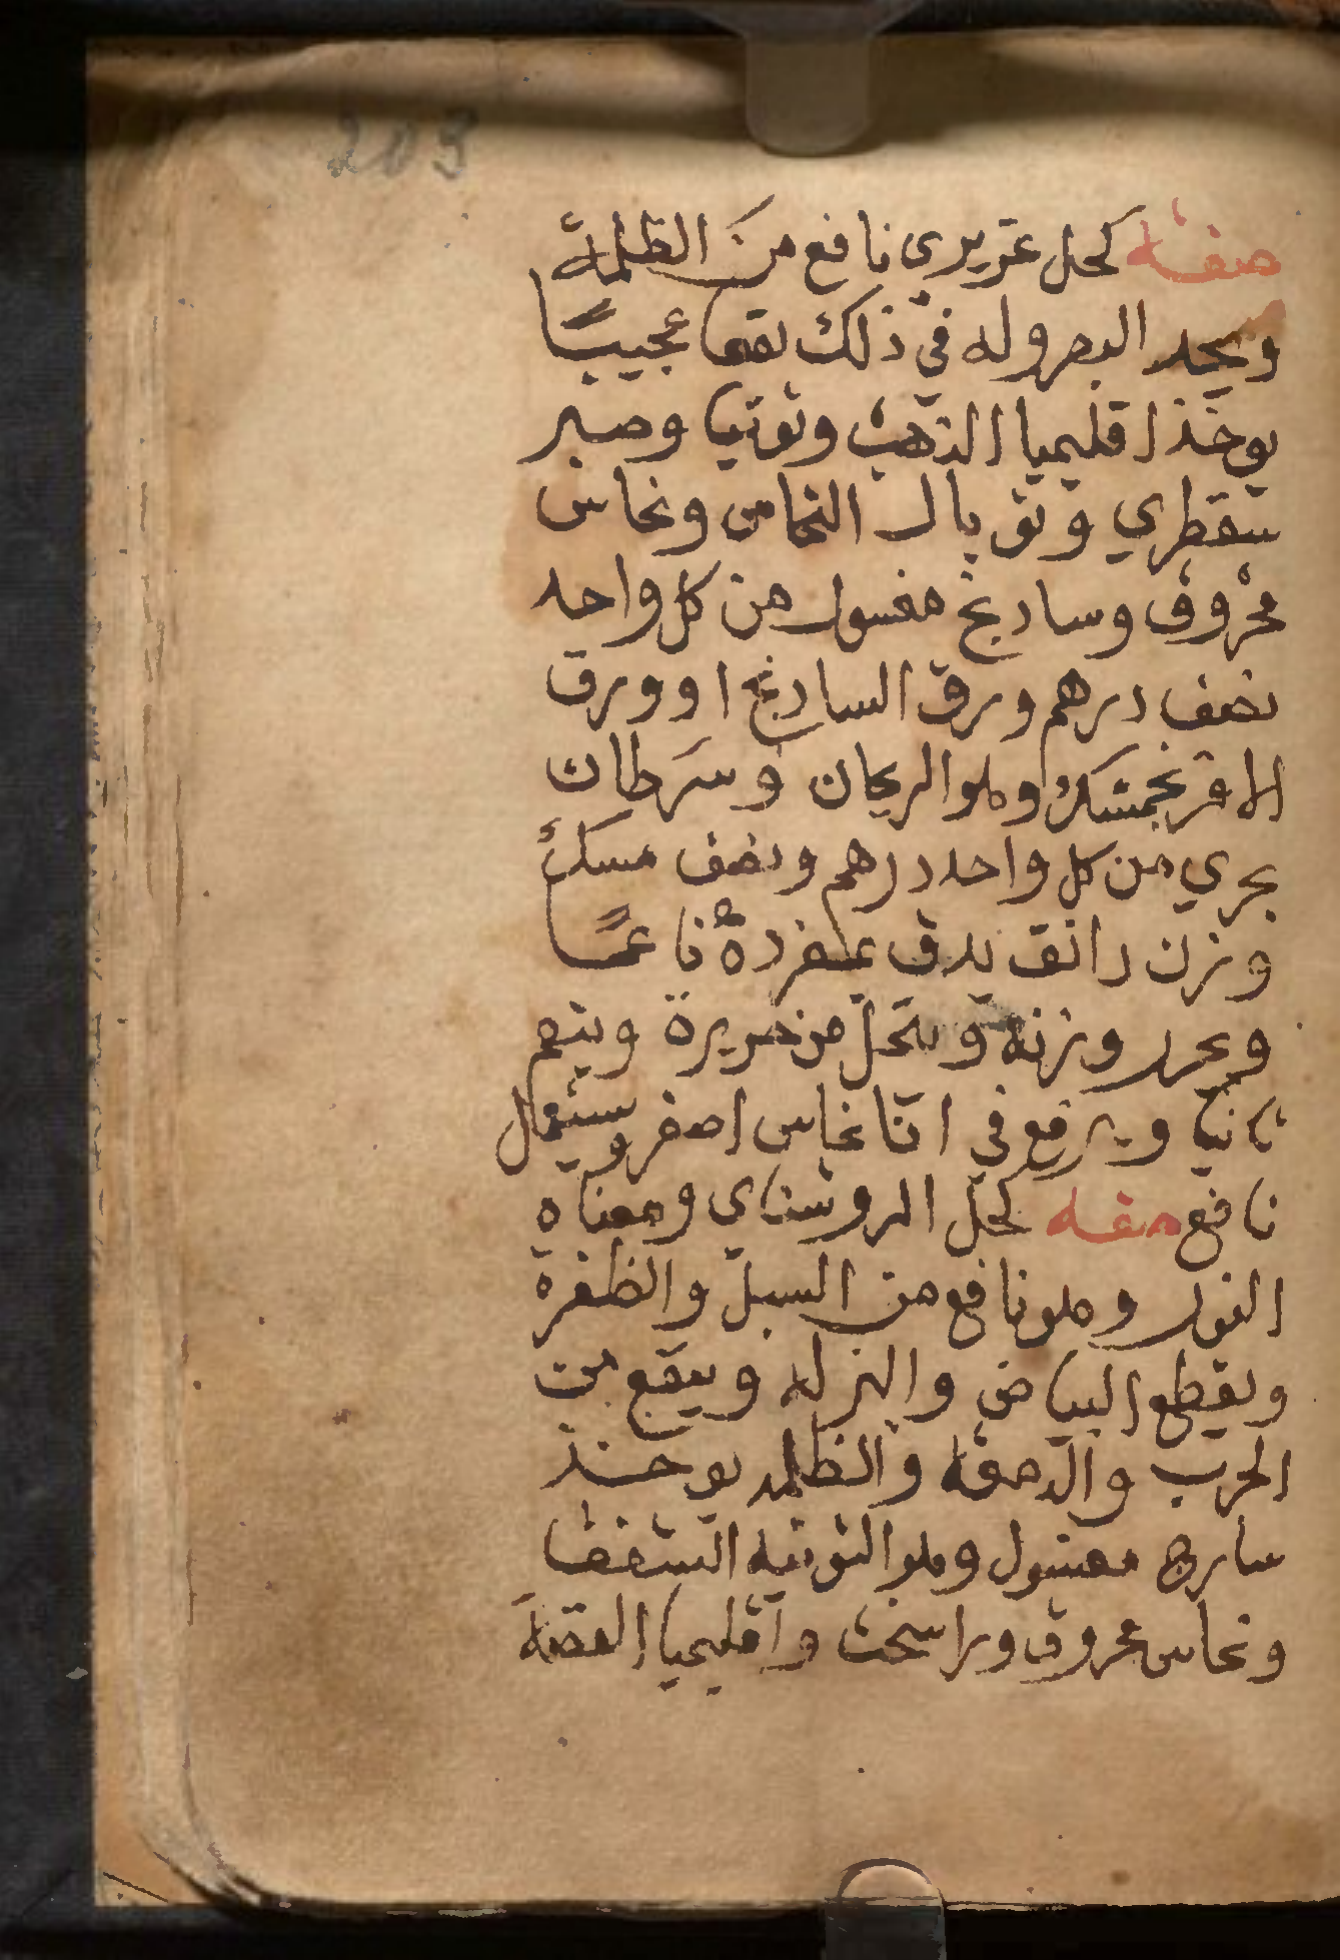 203
صفة كحل عزيزي نافع من الظلمة
ويحد البصر وله في ذلك نفعا عجيبًا
يوخذ اقليميا الذهب وتوتيا وصبر
سقطري وتوبال النحاس ونحاس
محروق وسادنج مغسول من كل واحد
نصف درهم ورق السادنج او ورق
الافرنجمشك وهو الريحان وسرطان
بحري من كل واحد درهم ونصف مسك
وزن دانق يدق بمفرده ناعمًا
ويحرر وزنه وينخل من حريرة وينعم
ثانيا ويرفع في انا نحاس اصفر ويستعمال
نافع صفه كحل الروشناي ومعناه
النور وهو نافع من السبل والظفرة
ويقطع البياض والنزله وينفع من
الجرب والدمعة والظلمه يوخذ
سادنج مغسول وهو التوتيه الشفقا
ونحاس محروق وراسخت واقليميا الفضة